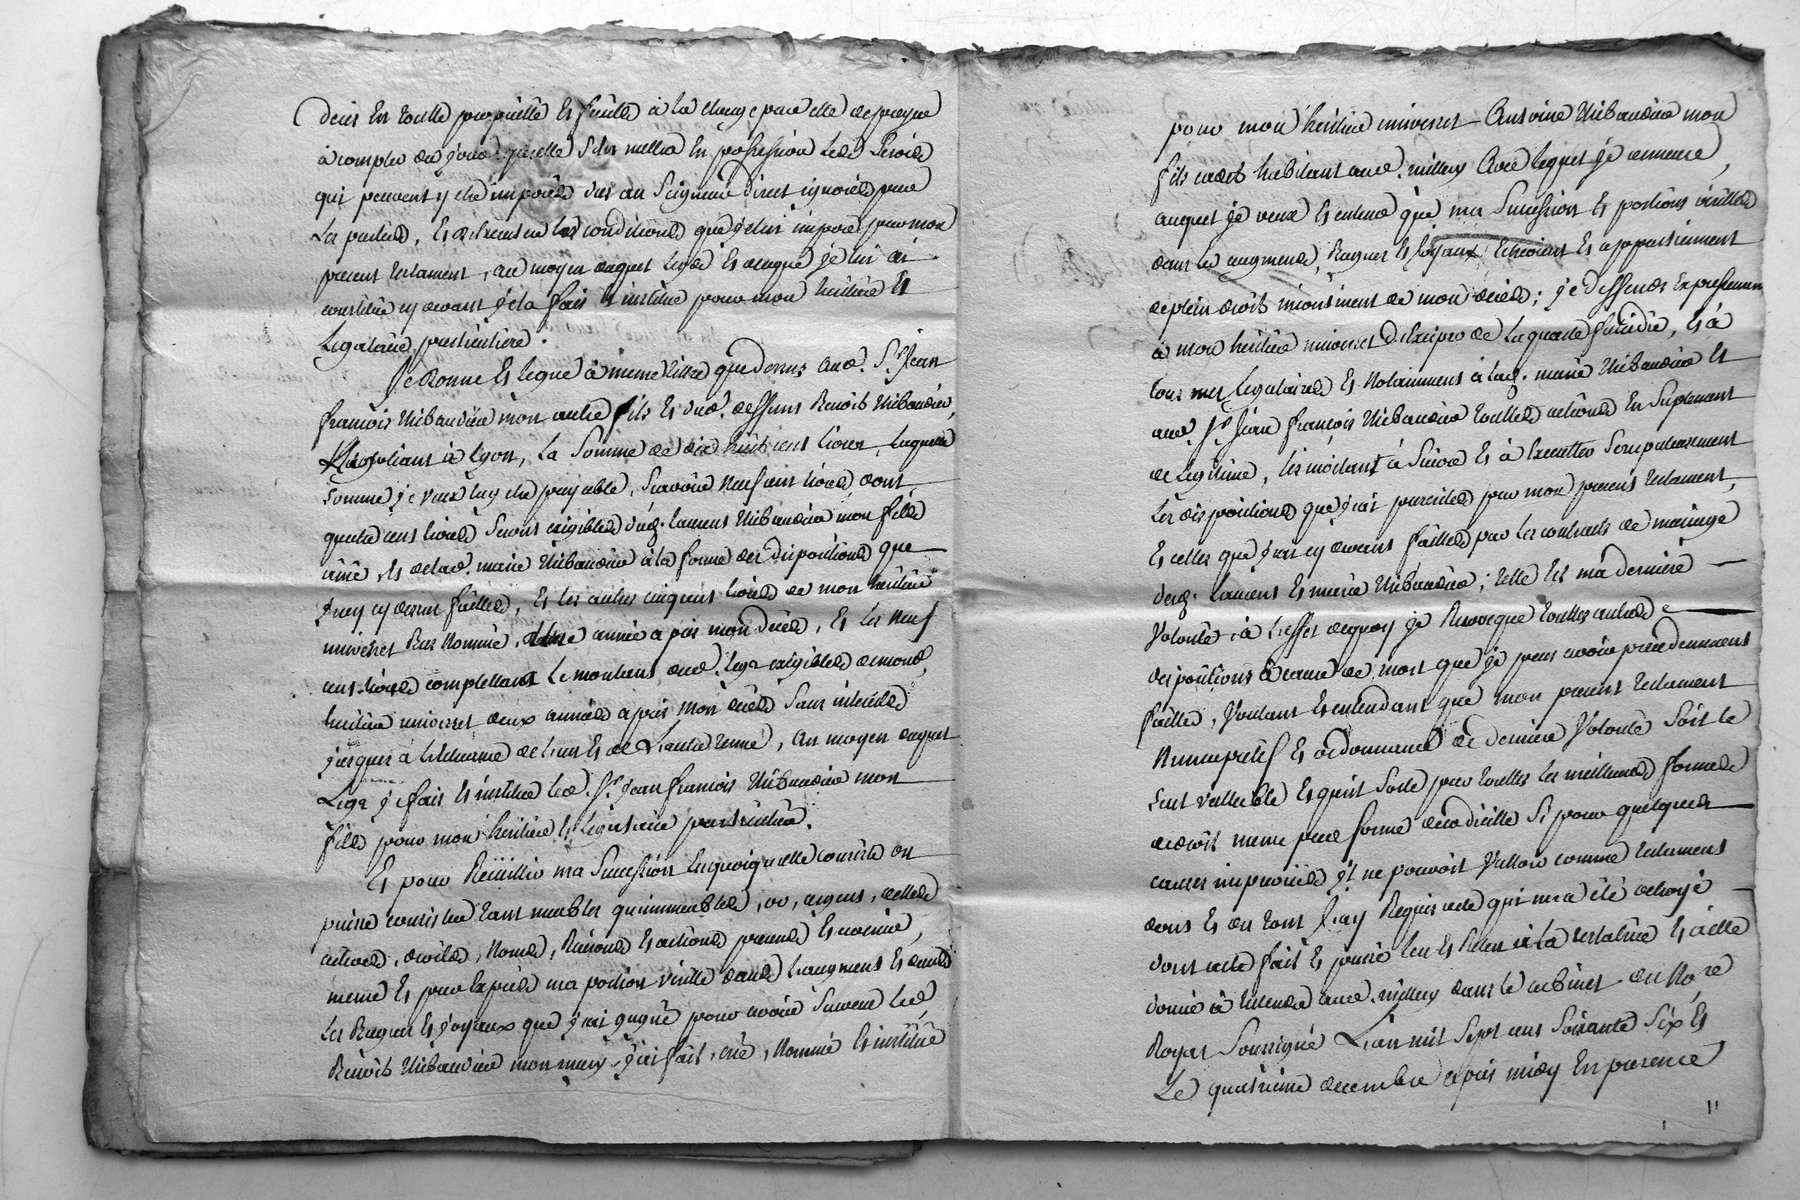 deces En toutte propriété Es fruits à la charge par elle de payer
à compter du jour quelle sera mise En possession les Servis
qui peuvent y etre imposés dus au Seigneur direct ignorés par
Les parties, Es executer les conditions que je lui impose par mon
present testament, au moyen duquel Legs Es de ce que je lui ai
constitué cy devant je la fais Es institue pour mon heritière Es
Legataire particulière.
Je donne Es legue à meme titre que dessus aud. Sr. Jean
françois Thibaudier mon autre fils Es dud. deffunt Benoit Thibaudier,
Negotiant à Lyon, La Somme de dix huit cent livres, Laquelle
somme je veux luy etre payable, Scavoir neuf cent livres dont
quatre cens livres Seront exigibles dud. Laurent Thibaudier mon fils
ainé, Es de lad. marie Thibaudier à la forme des dispositions que
j'ay cy dessus faittes, Es les autres cinq cens livres de mon heritier
universel Bas Nommé, une année apres mon décès, Es les neuf
cens livres complettant Le montant dud. legs exigibles de mond.
heritier universel deux années apres mon décès Sans interets
jusques à L'echeance de L'un Es de L'autre terme, au moyen duquel
Legs je fais Es institue led. Sr. Jean françois Thibaudier mon
fils pour mon heritier Es Legataire particulier.
Es pour Recüillir ma Succession En quoi quelle consiste ou
puisse consister tant meubles qu'immeubles, or, argent, dettes
actives, droits, Noms, Raisons Es actions present Es avenir,
meme Es par Exprès ma portion virille dans L'augment Es dans
Les Bagues Es joyaux que j'ai gagné pour avoir Survecu led.
Benoit Thibaudier mon mary, j'ai fait, créé, Nommé Es institué
pour mon heritier universel Antoine Thibaudier mon
fils cadet habitant aud. millery Avec lequel je demeure,
auquel je veux Es entend que ma Succession Es portions virilles
dans les augment, Bagues Es joyaux Echoient Es appartiennent
de plein droit incontinent de mon décès; je deffends Expressement
à mon heritier universel D'Extrere de La quarte falcidie, Es à
tous mes Legataires Es Notamment à lad. marie Thibaudier Es
aud. Sr. Jean françois Thibaudier touttes actions En Suplement
de Legitime, Les invitant à Suivre Es à Executter Scrupuleusement
Les dispositions que j'ai faittes par mon present testament,
Es celles que j'ai cy devant faittes par les contrats de mariage
desd. Laurent Es marie Thibaudier; telle est ma derniere
Volonté à L'effet de quoy je Revoque touttes autres
dispositions à cause de mort que je peux avoir precedemment
faittes, Voulant Es entendant que mon present testament
Nuncupatif Es ordonnance de derniere Volonté Soit le
seul vallable Es quil Sorte par touttes les meilleures formes
de droit meme par forme de codicille Si pour quelques
causes imprevües il ne pouvoit Valloir comme testament
dont Es du tout J'ay Requis acte qui m'a été octroyé
dont acte fait Es passé Leu Es Releu à La testatrice Es à elle
donné à Entendre aud. millery dans le cabinet du No.re
Royal Soussigné L'an mil Sept cens Soixante Six Es
Le quatrieme decembre apres midy En presence
11